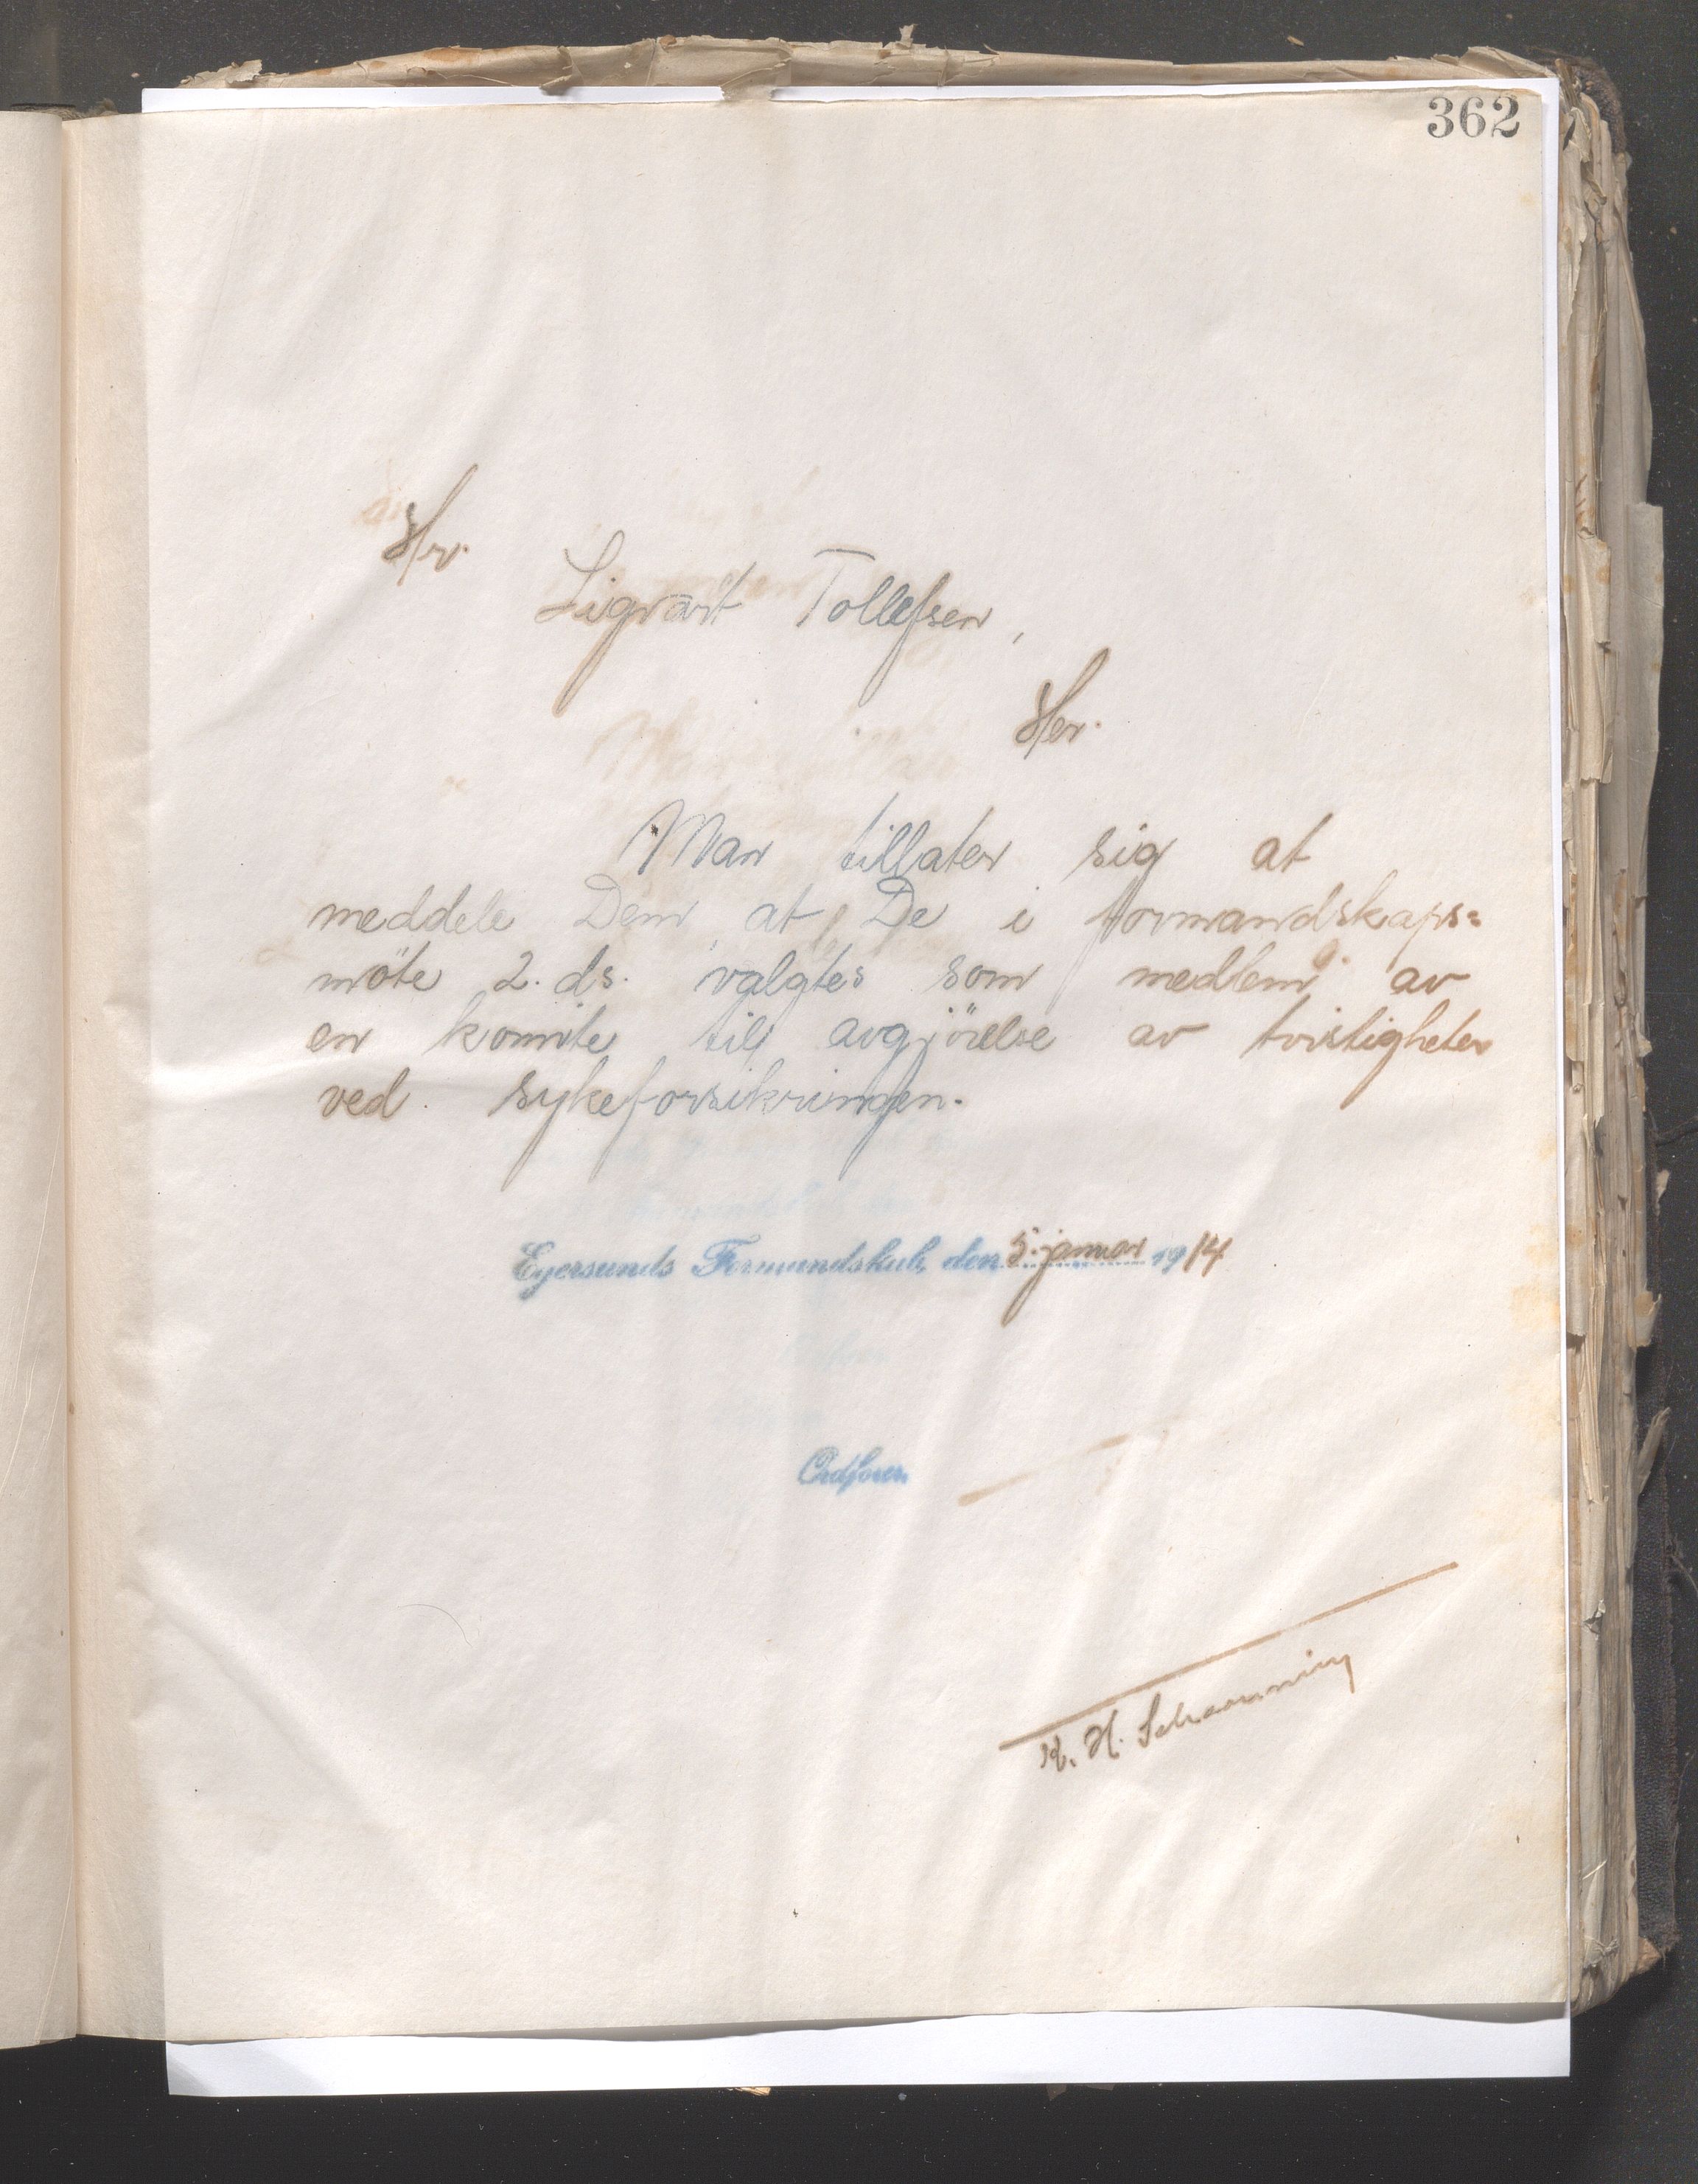 362
Hr.
Sigvart Tollefsen,
Her.
Man tillater sig at
meddele Dem, at De i formandskaps=
möte 2. ds. valgtes som medlem av
en komite til avgjörelse av tvistigheter
ved sykeforsikringen.
Egersunds Formandskab, den 5. januar 1914
Ordfører
H. Schanning